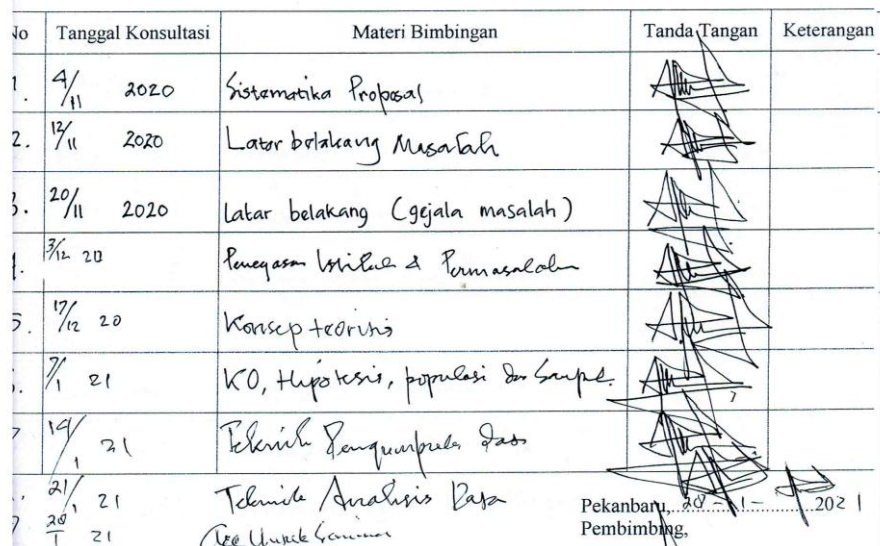 No Tanggal Konsultasi Materi Bimbingan Tanda Tangan Keterangan
1. 4/11 2020 Sistematika Proposal
2. 12/11 2020 Latar belakang Masalah
3. 20/11 2020 Latar belakang (gejala masalah)
3/12 20 Penegasan Istilah & Permasalahan
5. 17/12 20 Konsep teoritis
7/1 21 KO, Hipotesis, populasi dan Sampel.
14/1 21 Teknik Pengumpulan Data
21/1 21 Teknik Analisis Data
28/1 21 Acc Untuk Seminar
Pekanbaru, 28 - 1 - 2021
Pembimbing,